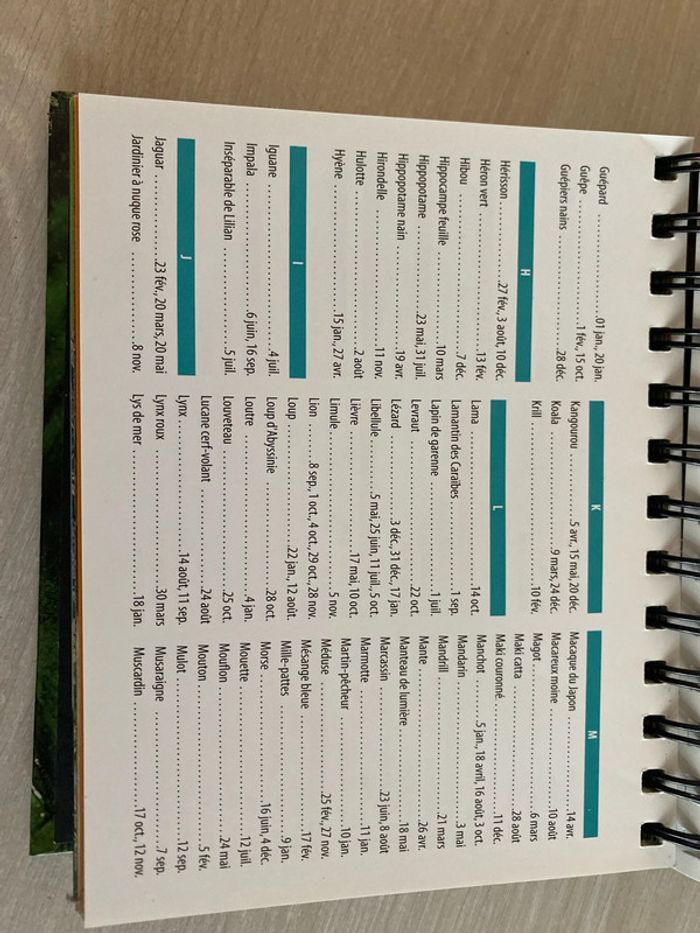 Guépard ....................01 jan., 20 jan.
Guêpe ........................1 fév., 15 oct.
Guépiers nains ........................28 déc.
H
Hérisson ................27 fév., 3 août, 10 déc.
Héron vert ..........................13 fév.
Hibou ..............................7 déc.
Hippocampe feuille ....................10 mars
Hippopotame ....................23 mai, 31 juil.
Hippopotame nain ....................19 avr.
Hirondelle ..........................11 nov.
Hulotte ............................2 août
Hyène ........................15 jan., 27 avr.
I
Iguane ............................4 juil.
Impala ........................6 juin, 16 sep.
Inséparable de Lilian ....................5 juil.
J
Jaguar ................23 fév., 20 mars, 20 mai
Jardinier à nuque rose ..................8 nov.
K
Kangourou ................5 avr., 15 mai, 20 déc.
Koala ........................9 mars, 24 déc.
Krill ..............................10 fév.
L
Lama ............................14 oct.
Lamantin des Caraïbes ..................1 sep.
Lapin de garenne ......................1 juil.
Levraut ............................22 oct.
Lézard ................3 déc., 31 déc., 17 jan.
Libellule ..........5 mai, 25 juin, 11 juil., 5 oct.
Lièvre ........................17 mai, 10 oct.
Limule ............................5 nov.
Lion ........8 sep., 1 oct., 4 oct., 29 oct., 28 nov.
Loup ........................22 jan., 12 août.
Loup d'Abyssinie ......................28 oct.
Loutre ............................4 jan.
Louveteau ..........................25 oct.
Lucane cerf-volant ....................24 août
Lynx ........................14 août, 11 sep.
Lynx roux ..........................30 mars
Lys de mer ..........................18 jan.
M
Macaque du Japon ....................14 avr.
Macareux moine ......................10 août
Magot ............................6 mars
Maki catta ..........................28 août
Maki couronné ......................11 déc.
Manchot ..........5 jan., 18 avril, 16 août, 3 oct.
Mandarin ..........................3 mai
Mandrill ............................21 mars
Mante ............................26 avr.
Manteau de lumière ....................18 mai
Marcassin ....................23 juin, 8 août
Marmotte ..........................11 jan.
Martin-pêcheur ......................10 jan.
Méduse ....................25 fév., 27 nov.
Mésange bleue ......................17 fév.
Mille-pattes ..........................9 jan.
Morse ........................16 juin, 4 déc.
Mouette ............................12 juil.
Mouflon ............................24 mai
Mouton ............................5 fév.
Mulot ............................12 sep.
Musaraigne ..........................7 sep.
Muscardin ....................17 oct., 12 nov.